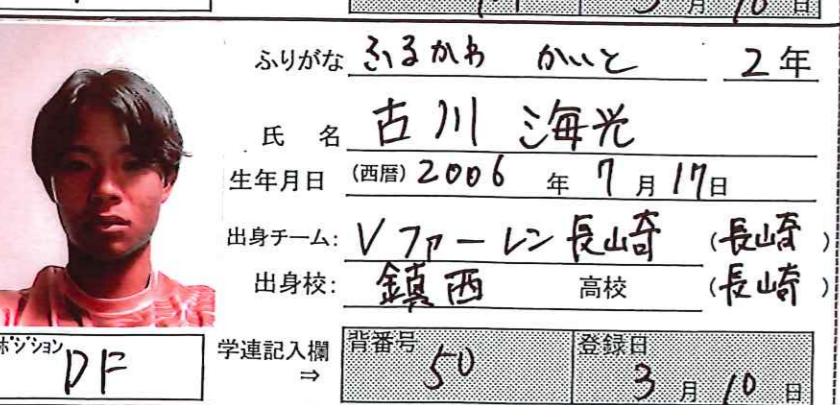 3月10日
ふりがな ふるかわ かいと 2年
氏名 古川 海光
生年月日 (西暦) 2006年7月17日
出身チーム: Vファーレン長崎 (長崎)
出身校: 鎮西 高校 (長崎)
ポジション DF
学連記入欄⇒ 背番号 50 登録日 3月10日